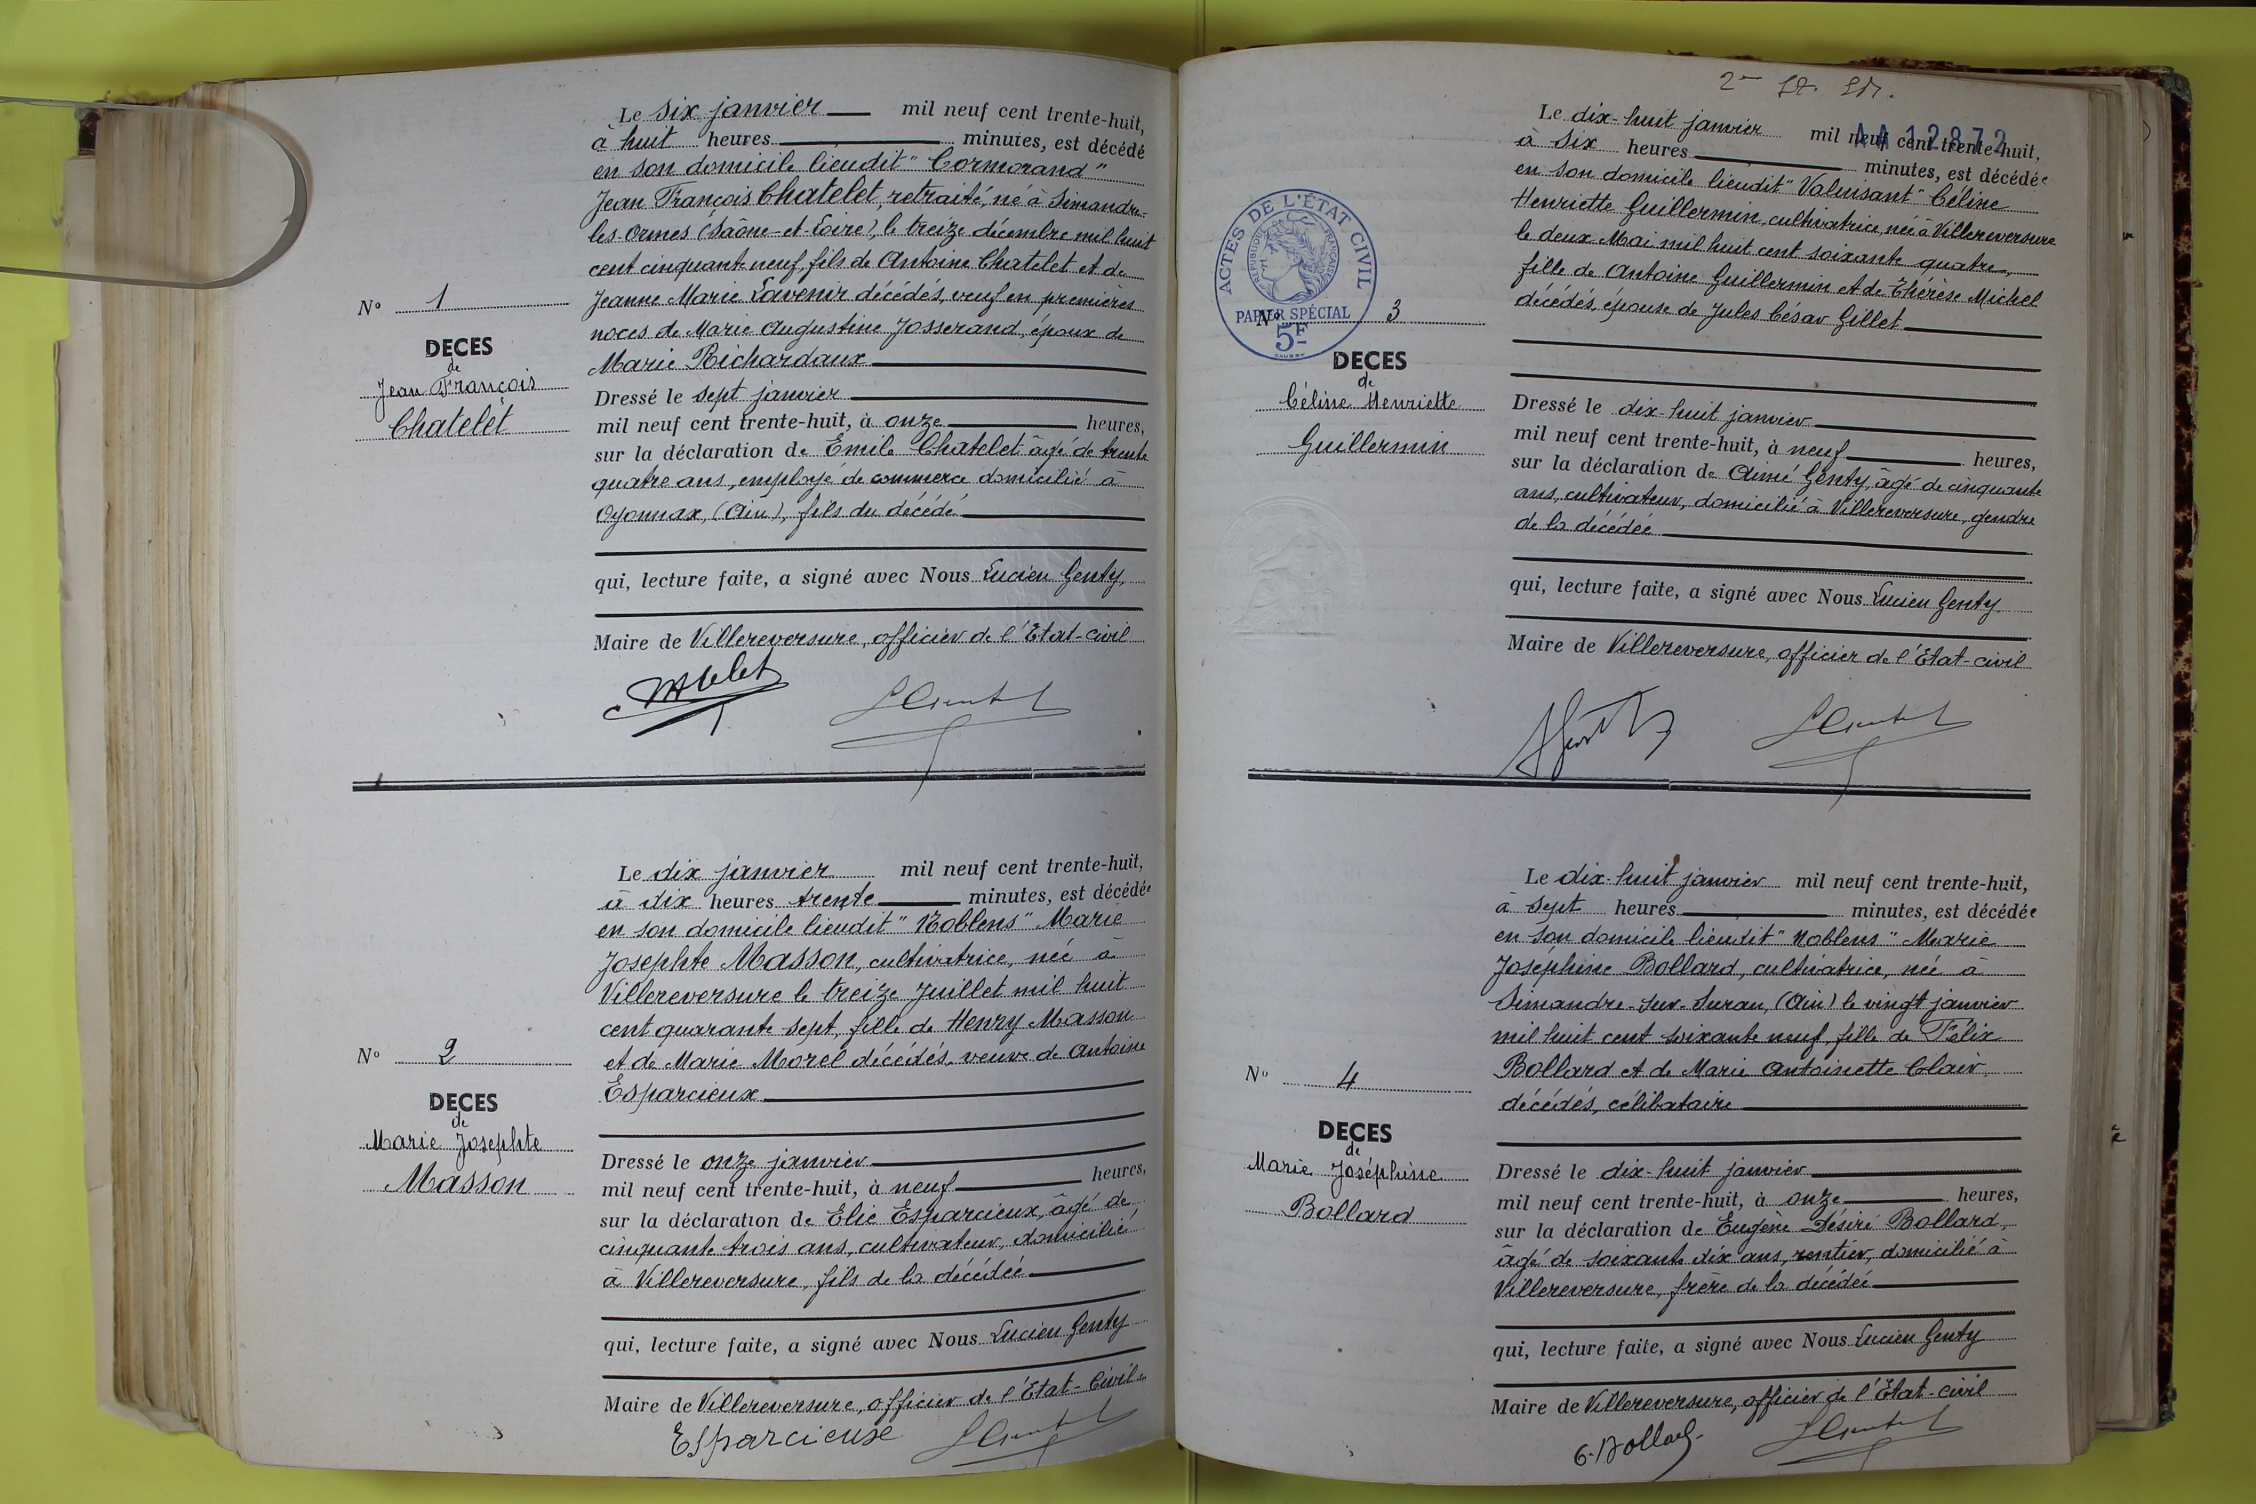 Le six janvier mil neuf cent trente-huit,
à huit heures minutes, est décédé
en son domicile lieudit "Cormorand"
Jean François Chatelet, retraité, né à Simandre-
les Ormes (Saône-et-Loire), le treize décembre mil huit
cent cinquante neuf, fils de Antoine Chatelet et de
Jeanne Marie Lavenir décédés, veuf en premières
noces de Marie Augustine Josserand, époux de
Marie Richardaux
N° 1
DECES
de
Jean François
Chatelet
Dressé le sept janvier
mil neuf cent trente-huit, à onze heures,
sur la déclaration de Emile Chatelet âgé de trente
quatre ans, employé de commerce domicilié à
Oyonnax, (Ain), fils du décédé
qui, lecture faite, a signé avec Nous Lucien Genty,
Maire de Villereversure, officier de l'Etat-civil
Le dix janvier mil neuf cent trente-huit,
à dix heures trente minutes, est décédée
en son domicile lieudit "Noblens" Marie
Josephte Masson, cultivatrice, née à
Villereversure le treize Juillet mil huit
cent quarante sept, fille de Henry Masson
et de Marie Morel décédés, veuve de Antoine
Esparcieux
N° 2
DECES
de
Marie Josephte
Masson
Dressé le onze janvier
mil neuf cent trente-huit, à neuf heures,
sur la déclaration de Elie Esparcieux, âgé de
cinquante trois ans, cultivateur, domicilié
à Villereversure, fils de la décédée
qui, lecture faite, a signé avec Nous Lucien Genty
Maire de Villereversure, officier de l'Etat-Civil
Esparcieux
AA 12872
Le dix-huit janvier mil neuf cent trente-huit,
à six heures minutes, est décédée
en son domicile lieudit "Valuisant" Céline
Henriette Guillermin, cultivatrice, née à Villereversure
le deux Mai mil huit cent soixante quatre,
fille de Antoine Guillermin et de Thérèse Michel
décédés, épouse de Jules César Gillet
ACTES DE L'ÉTAT CIVIL
RÉPUBLIQUE FRANÇAISE
PAPIER SPÉCIAL
5F
N° 3
DECES
de
Céline Henriette
Guillermin
Dressé le dix-huit janvier
mil neuf cent trente-huit, à neuf heures,
sur la déclaration de Aimé Genty, âgé de cinquante
ans, cultivateur, domicilié à Villereversure, gendre
de la décédée
qui, lecture faite, a signé avec Nous Lucien Genty
Maire de Villereversure, officier de l'Etat-civil
Le dix-huit janvier mil neuf cent trente-huit,
à sept heures minutes, est décédée
en son domicile lieudit "Noblens" Marie
Joséphine Bollard, cultivatrice, née à
Simandre-sur-Suran, (Ain) le vingt janvier
mil huit cent soixante neuf, fille de Félix
Bollard et de Marie Antoinette Clair,
décédés, célibataire
N° 4
DECES
de
Marie Joséphine
Bollard
Dressé le dix-huit janvier
mil neuf cent trente-huit, à onze heures,
sur la déclaration de Eugène Désiré Bollard,
âgé de soixante dix ans, rentier, domicilié à
Villereversure, frère de la décédée
qui, lecture faite, a signé avec Nous Lucien Genty
Maire de Villereversure, officier de l'Etat-civil